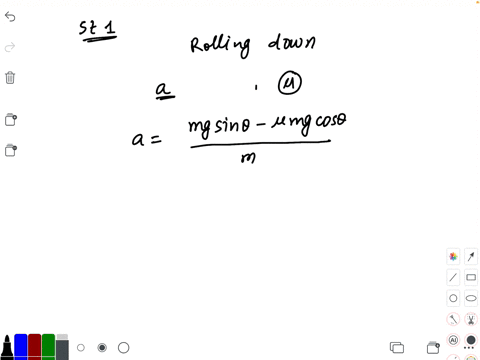 St 1
Rolling down
a . μ
a = mg sinθ - μ mg cosθ
m